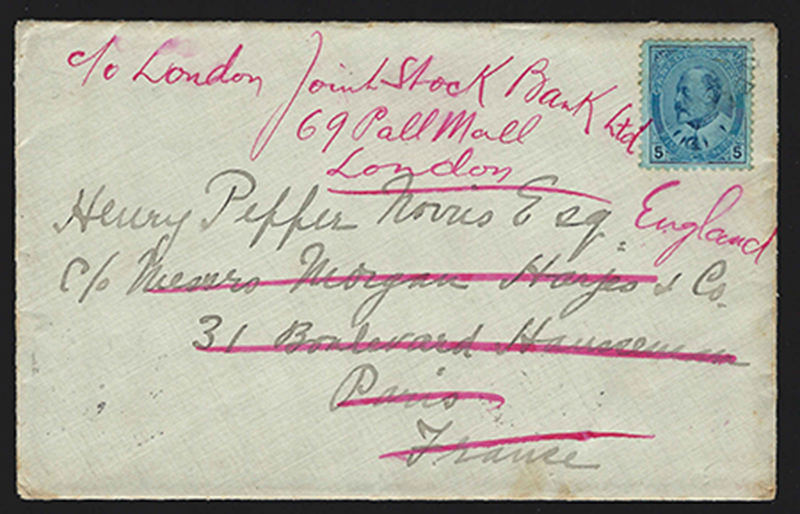 c/o London Joint Stock Bank Ltd
69 Pall Mall
London
England
5 5
Henry Peffer Norris Esq.
c/o Messrs Morgan Harjes & Co.
31 Boulevard Haussmann
Paris
France